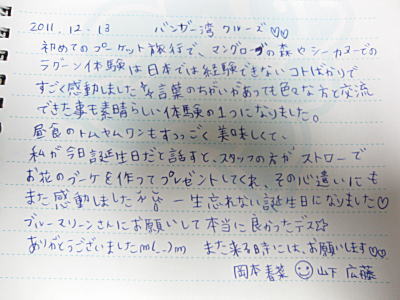 2011.12.13 パンガー湾クルーズ♡♡
初めてのプーケット旅行で、マングローブの森やシーカヌーでの
ラグーン体験は日本では経験できないコトばかりで
すごく感動しました 言葉のちがいがあっても色々な方と交流
できた事も素晴らしい体験の1つになりました。
昼食のトムヤムクンもすっっごく美味しくて、
私が今日誕生日だと話すと、スタッフの方がストローで
お花のブーケを作ってプレゼントしてくれ、その心遣いにも
また感動しました 一生忘れない誕生日になりました♡
ブルーマリーンさんにお願いして本当に良かったデス☆
ありがとうございましたm(_ _)m また来る時には、お願いします♡♡
岡本春菜 ☺ 山下広藤